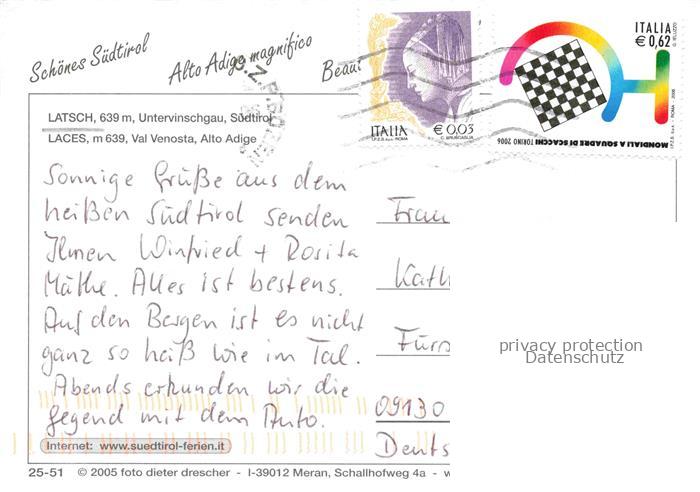 Schönes Südtirol
Alto Adige magnifico
Beau
ITALIA
€ 0,03
I.P.Z.S. S.p.A. - ROMA
ITALIA
€ 0,62
MONDIALI A SQUADRE DI SCACCHI TORINO 2006
LATSCH, 639 m, Untervinschgau, Südtirol
LACES, m 639, Val Venosta, Alto Adige
Sonnige Grüße aus dem
heißen Südtirol senden
Ihnen Winfried + Rosita
Mäthe. Alles ist bestens.
Auf den Bergen ist es nicht
ganz so heiß wie im Tal.
Abends erkunden wir die
Gegend mit dem Auto.
Frau
Kath
Fürs
09130
Deuts
privacy protection
Datenschutz
Internet: www.suedtirol-ferien.it
25-51 © 2005 foto dieter drescher - I-39012 Meran, Schallhofweg 4a - w